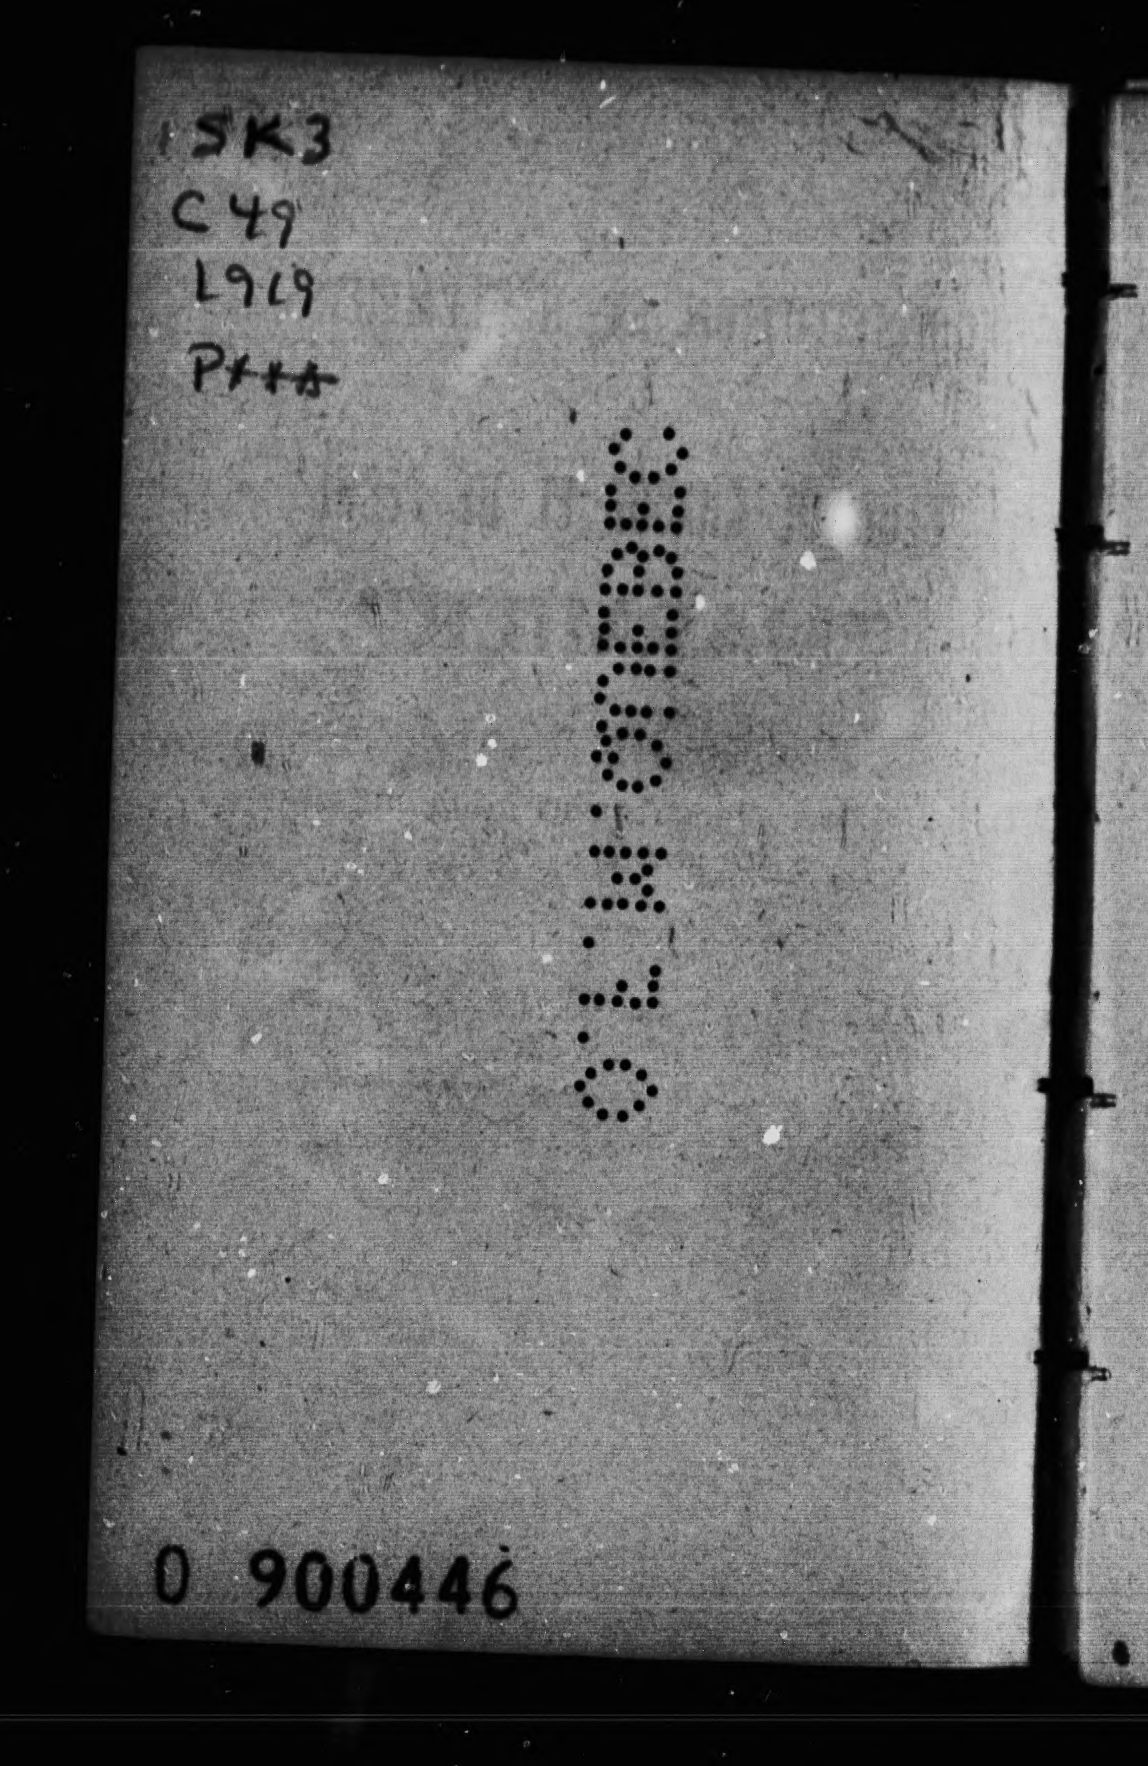 SK3
C49
1919
P***
O.F.M. QUEBEC
0 900446